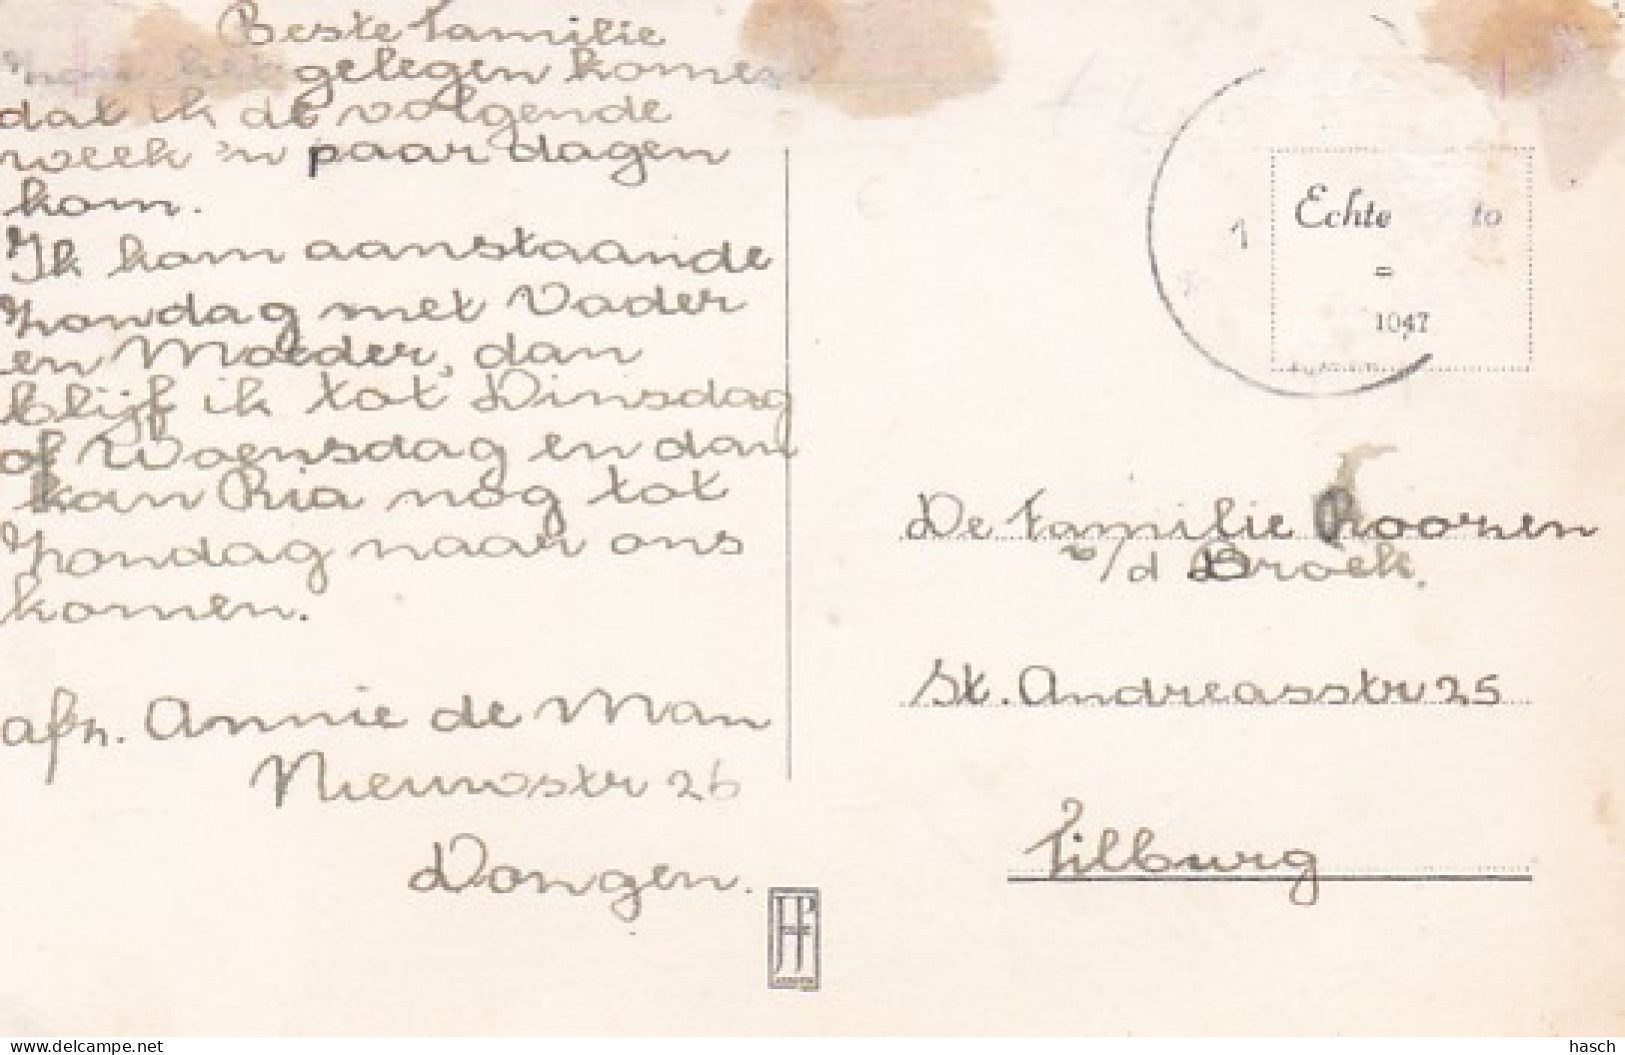 Beste Familie
het gelegen komen
dat ik de volgende
week 'n paar dagen
kom.
Ik kom aanstaande
Zondag met Vader
en Moeder, dan
blijf ik tot Dinsdag
of Woensdag en dan
kan Ria nog tot
Zondag naar ons
komen.
afz. Annie de Man
Nieuwstr 26
Dongen.
Echte to
=
1047
1
De Familie Rooren
v/d Broek.
St. Andreasstr 25
Tilburg
delcampe.net
hasch